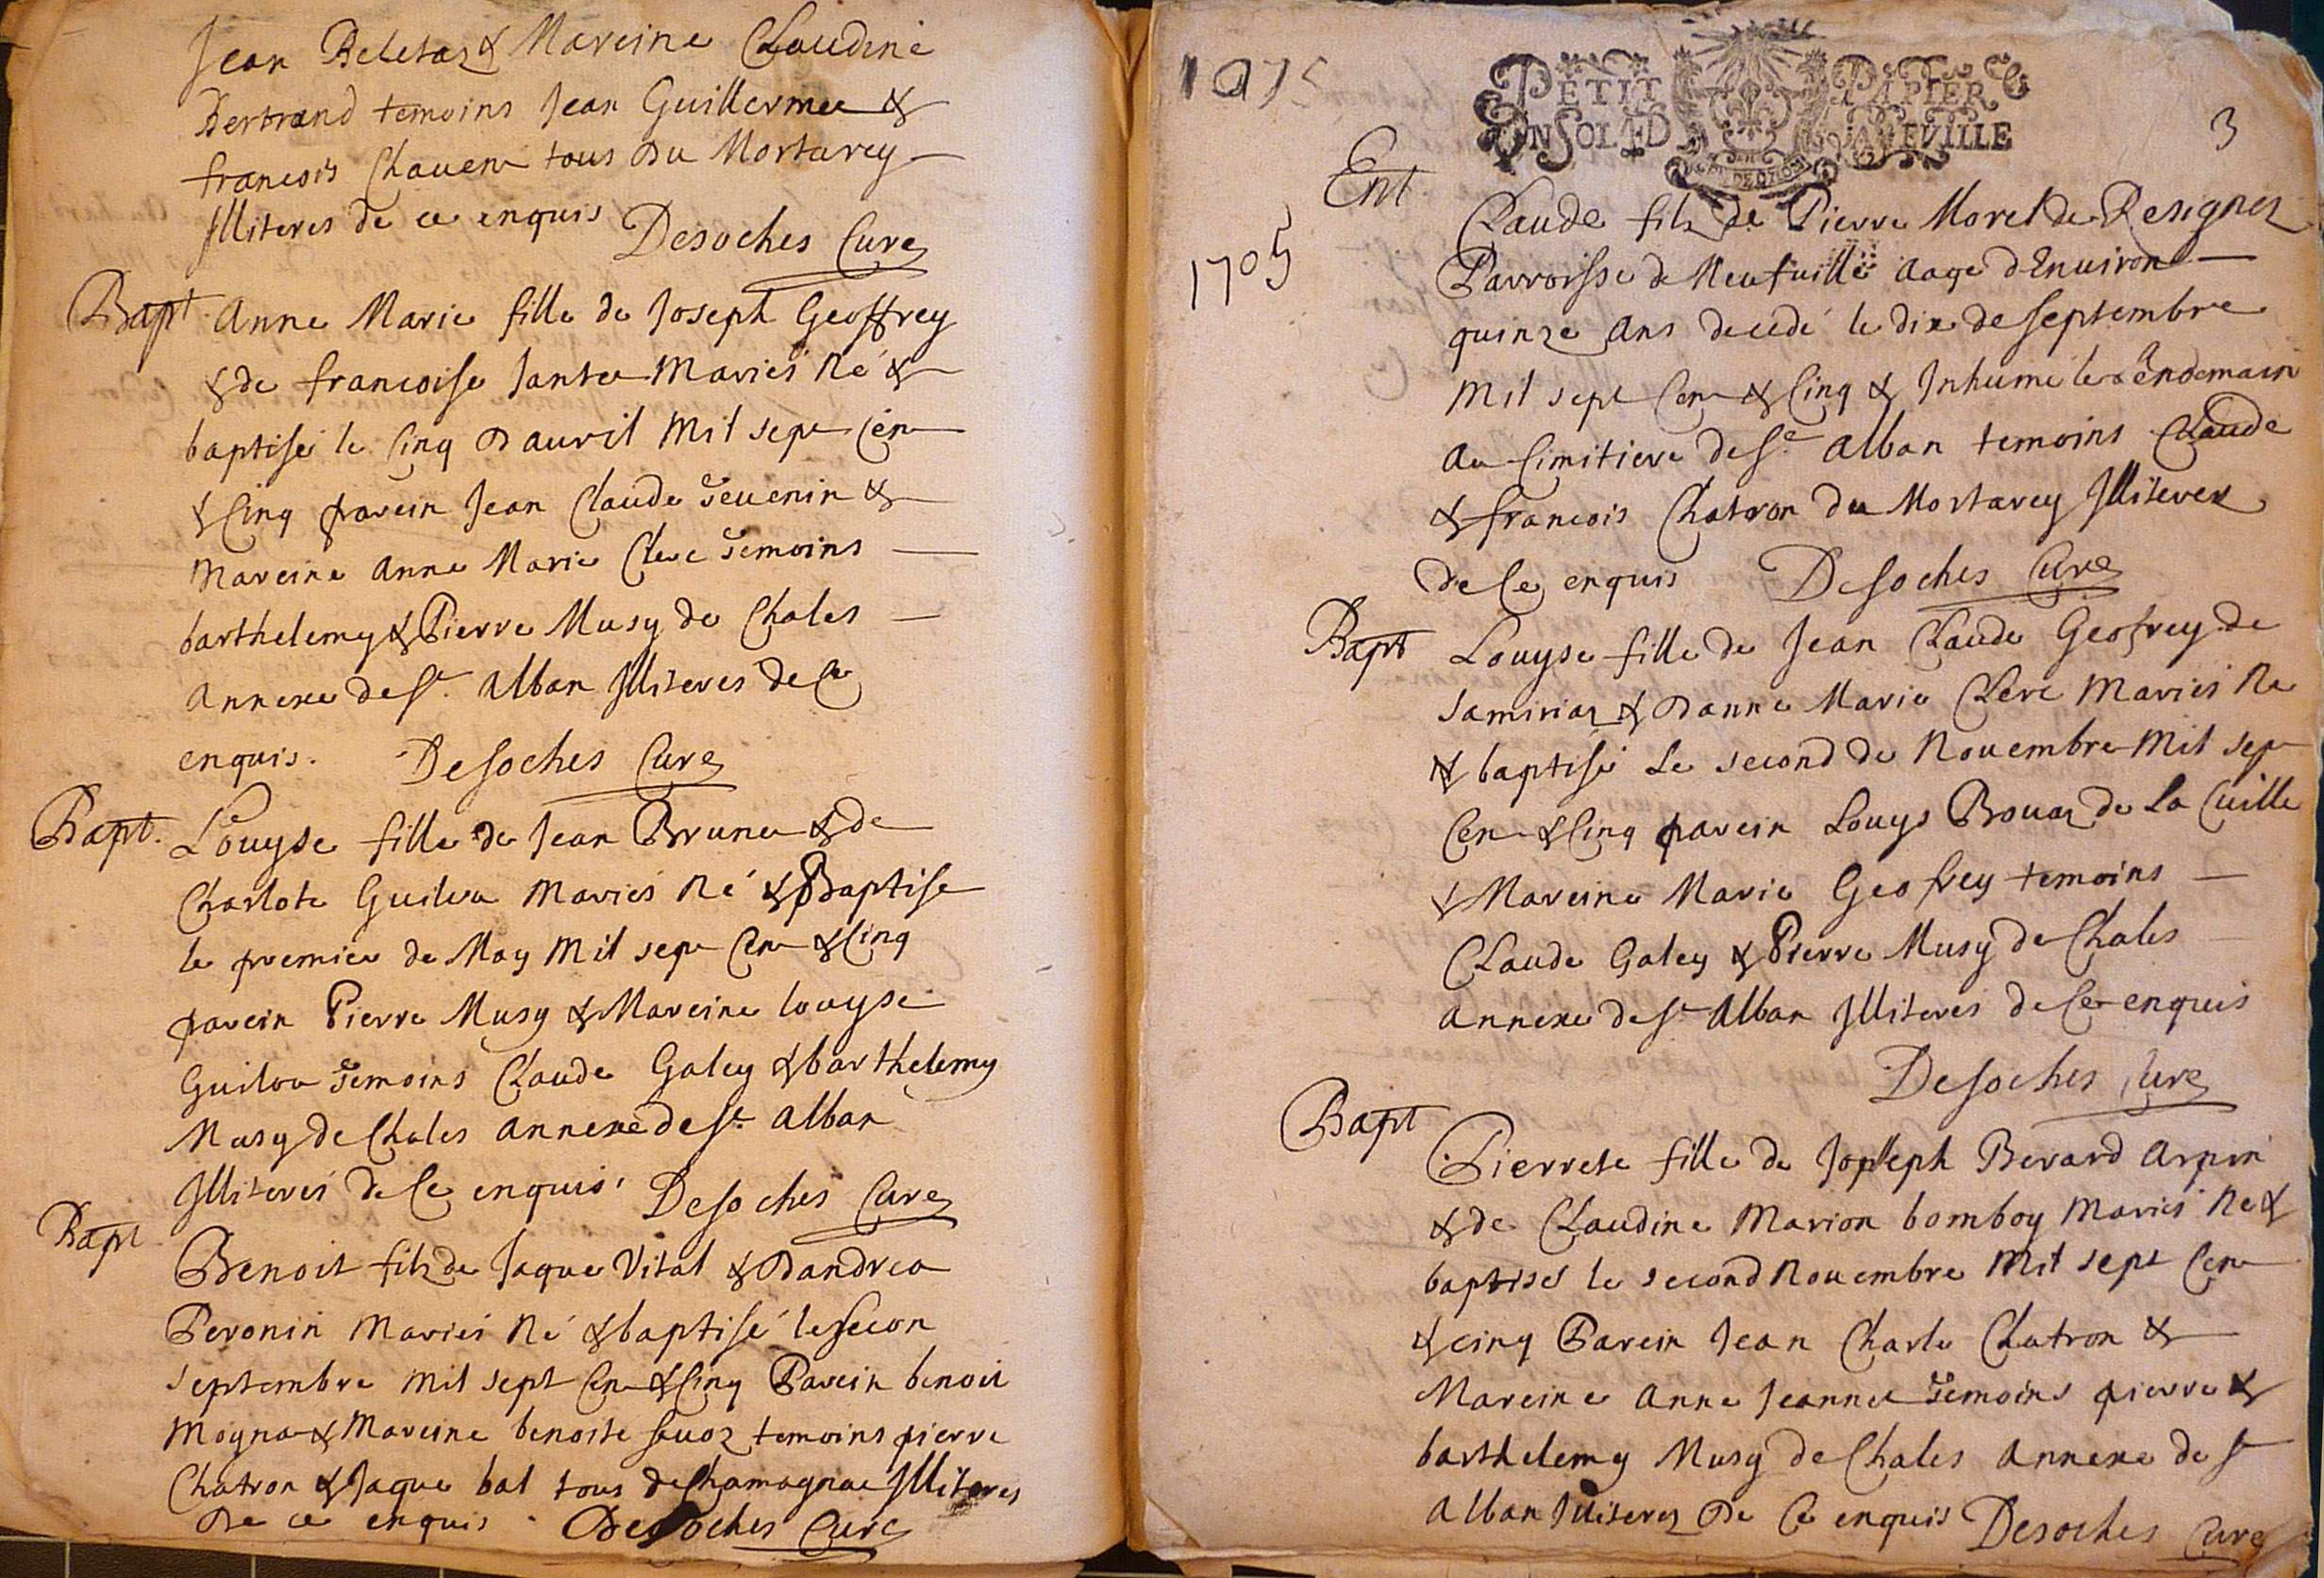 Jean Beletaz & Mareine Claudine
Bertrand temoins Jean Guillermee &
francois Chauen tous Du Mortarey
Jlliteres de ce enquis Desoches Curez
Bapt Anne Marie fille de Joseph Geoffrey
& de francoise Jantee Mariés Né &
baptisé le Cinq Dauril Mil sept Cen
& Cinq parein Jean Claude Teuenin &
Mareine Anne Marie Clerc Temoins
barthelemy & Pierre Musy de Chales
Annexe de St. Alban Jlliteres de Ce
enquis. Desoches Curez
Bapt. Louyse fille de Jean Brunee & de
Charlote Guilou Mariés Né & Baptise
le premier de May Mil sep Cen & Cinq
parein Pierre Musy & Mareine louyse
Guilou Temoins Claude Galey & barthelemy
Musy de Chales annexe de St. Alban
Jlliterés de Ce enquis. Desoches Curez
Bapt
Benoit filz de Jaque Vital & Dandrea
Peronin Mariés Né & baptisé le secon
septembre Mil sept Cen & Cinq Parein benoit
Mogna & Mareine benoite sauoz temoins pierre
Chatron & Jaque bal tous de Chamagnae Jlliteres
De ce enquis. Desoches Cure
PETIT PAPIER
UN SOL 4 D LA FEUILLE
3
Ent
Claude filz de Pierre Morel de Resignez
1705 Parroisse de Neufuille aage dEnuiron
quinze Ans decedé le dix de septembre
Mil sept Cen & Cinq & Jnhumé le Lendemain
Au Cimitiere de St. Alban temoins Claude
& francois Chatron du Mortarey Jlliterez
de Ce enquis Desoches Curez
Bapt Louyse fille de Jean Claude Geofrey de
Samiriaz & Danne Marie Clerc Mariés Né
& baptisé Le second de Nouembre Mil sep
Cen & Cinq parein Louys Bouaz de La Cuille
& Mareine Marie Geofrey temoins
Claude Galey & Pierre Musy de Chales
annexe de St Alban Jlliteres de Ce enquis
Desoches Curez
Bapt
Pierrete fille de Joseph Berard Arpin
& de Claudine Marion bomboy Mariés Né &
baptisés le second Nouembre Mil sept Cen
& cinq Parein Jean Charle Chatron &
Mareine Anne Jeannee Temoins pierre &
barthelemy Musy de Chales Annexe de St
Alban Jlliterez De Ce enquis Desoches Cure